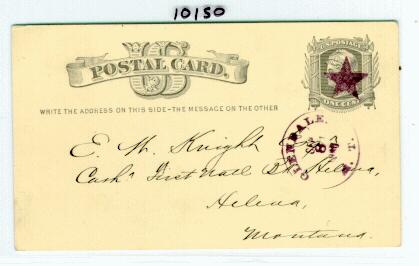 10150
US
POSTAL CARD.
U.S. POSTAGE
ONE CENT
WRITE THE ADDRESS ON THIS SIDE-THE MESSAGE ON THE OTHER
GLENDALE, M.T.
8
E. W. Knight
Cash First Natl Bk Helena,
Helena,
Montana.